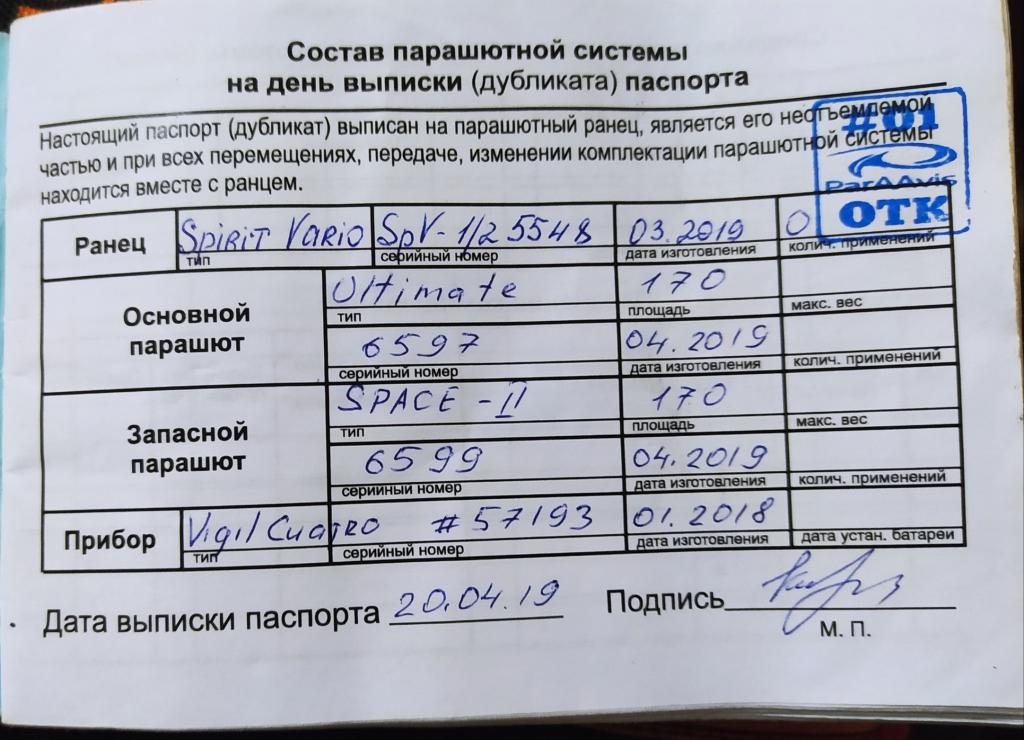 Состав парашютной системы
на день выписки (дубликата) паспорта
Настоящий паспорт (дубликат) выписан на парашютный ранец, является его неотъемлемой
частью и при всех перемещениях, передаче, изменении комплектации парашютной системы
находится вместе с ранцем.
#01
ParAAvis
ОТК
Ранец
Spirit Vario
SpV-1/2 5548
03.2019
0
тип
серийный номер
дата изготовления
колич. применений
Основной
парашют
Ultimate
170
тип
площадь
макс. вес
6597
04.2019
серийный номер
дата изготовления
колич. применений
Запасной
парашют
SPACE - II
170
тип
площадь
макс. вес
6599
04.2019
серийный номер
дата изготовления
колич. применений
Прибор
Vigil Cuatro #57193
01.2018
тип
серийный номер
дата изготовления
дата устан. батареи
Дата выписки паспорта 20.04.19
Подпись
М. П.